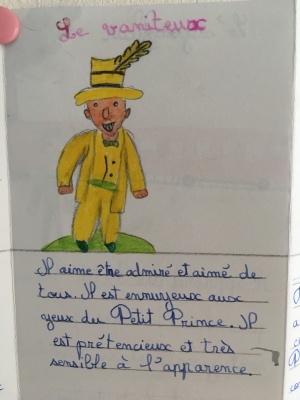 Le vaniteux
Il aime être admiré et aimé de
tous. Il est ennuyeux aux
yeux du Petit Prince. Il
est prétencieux et très
sensible à l'apparence.